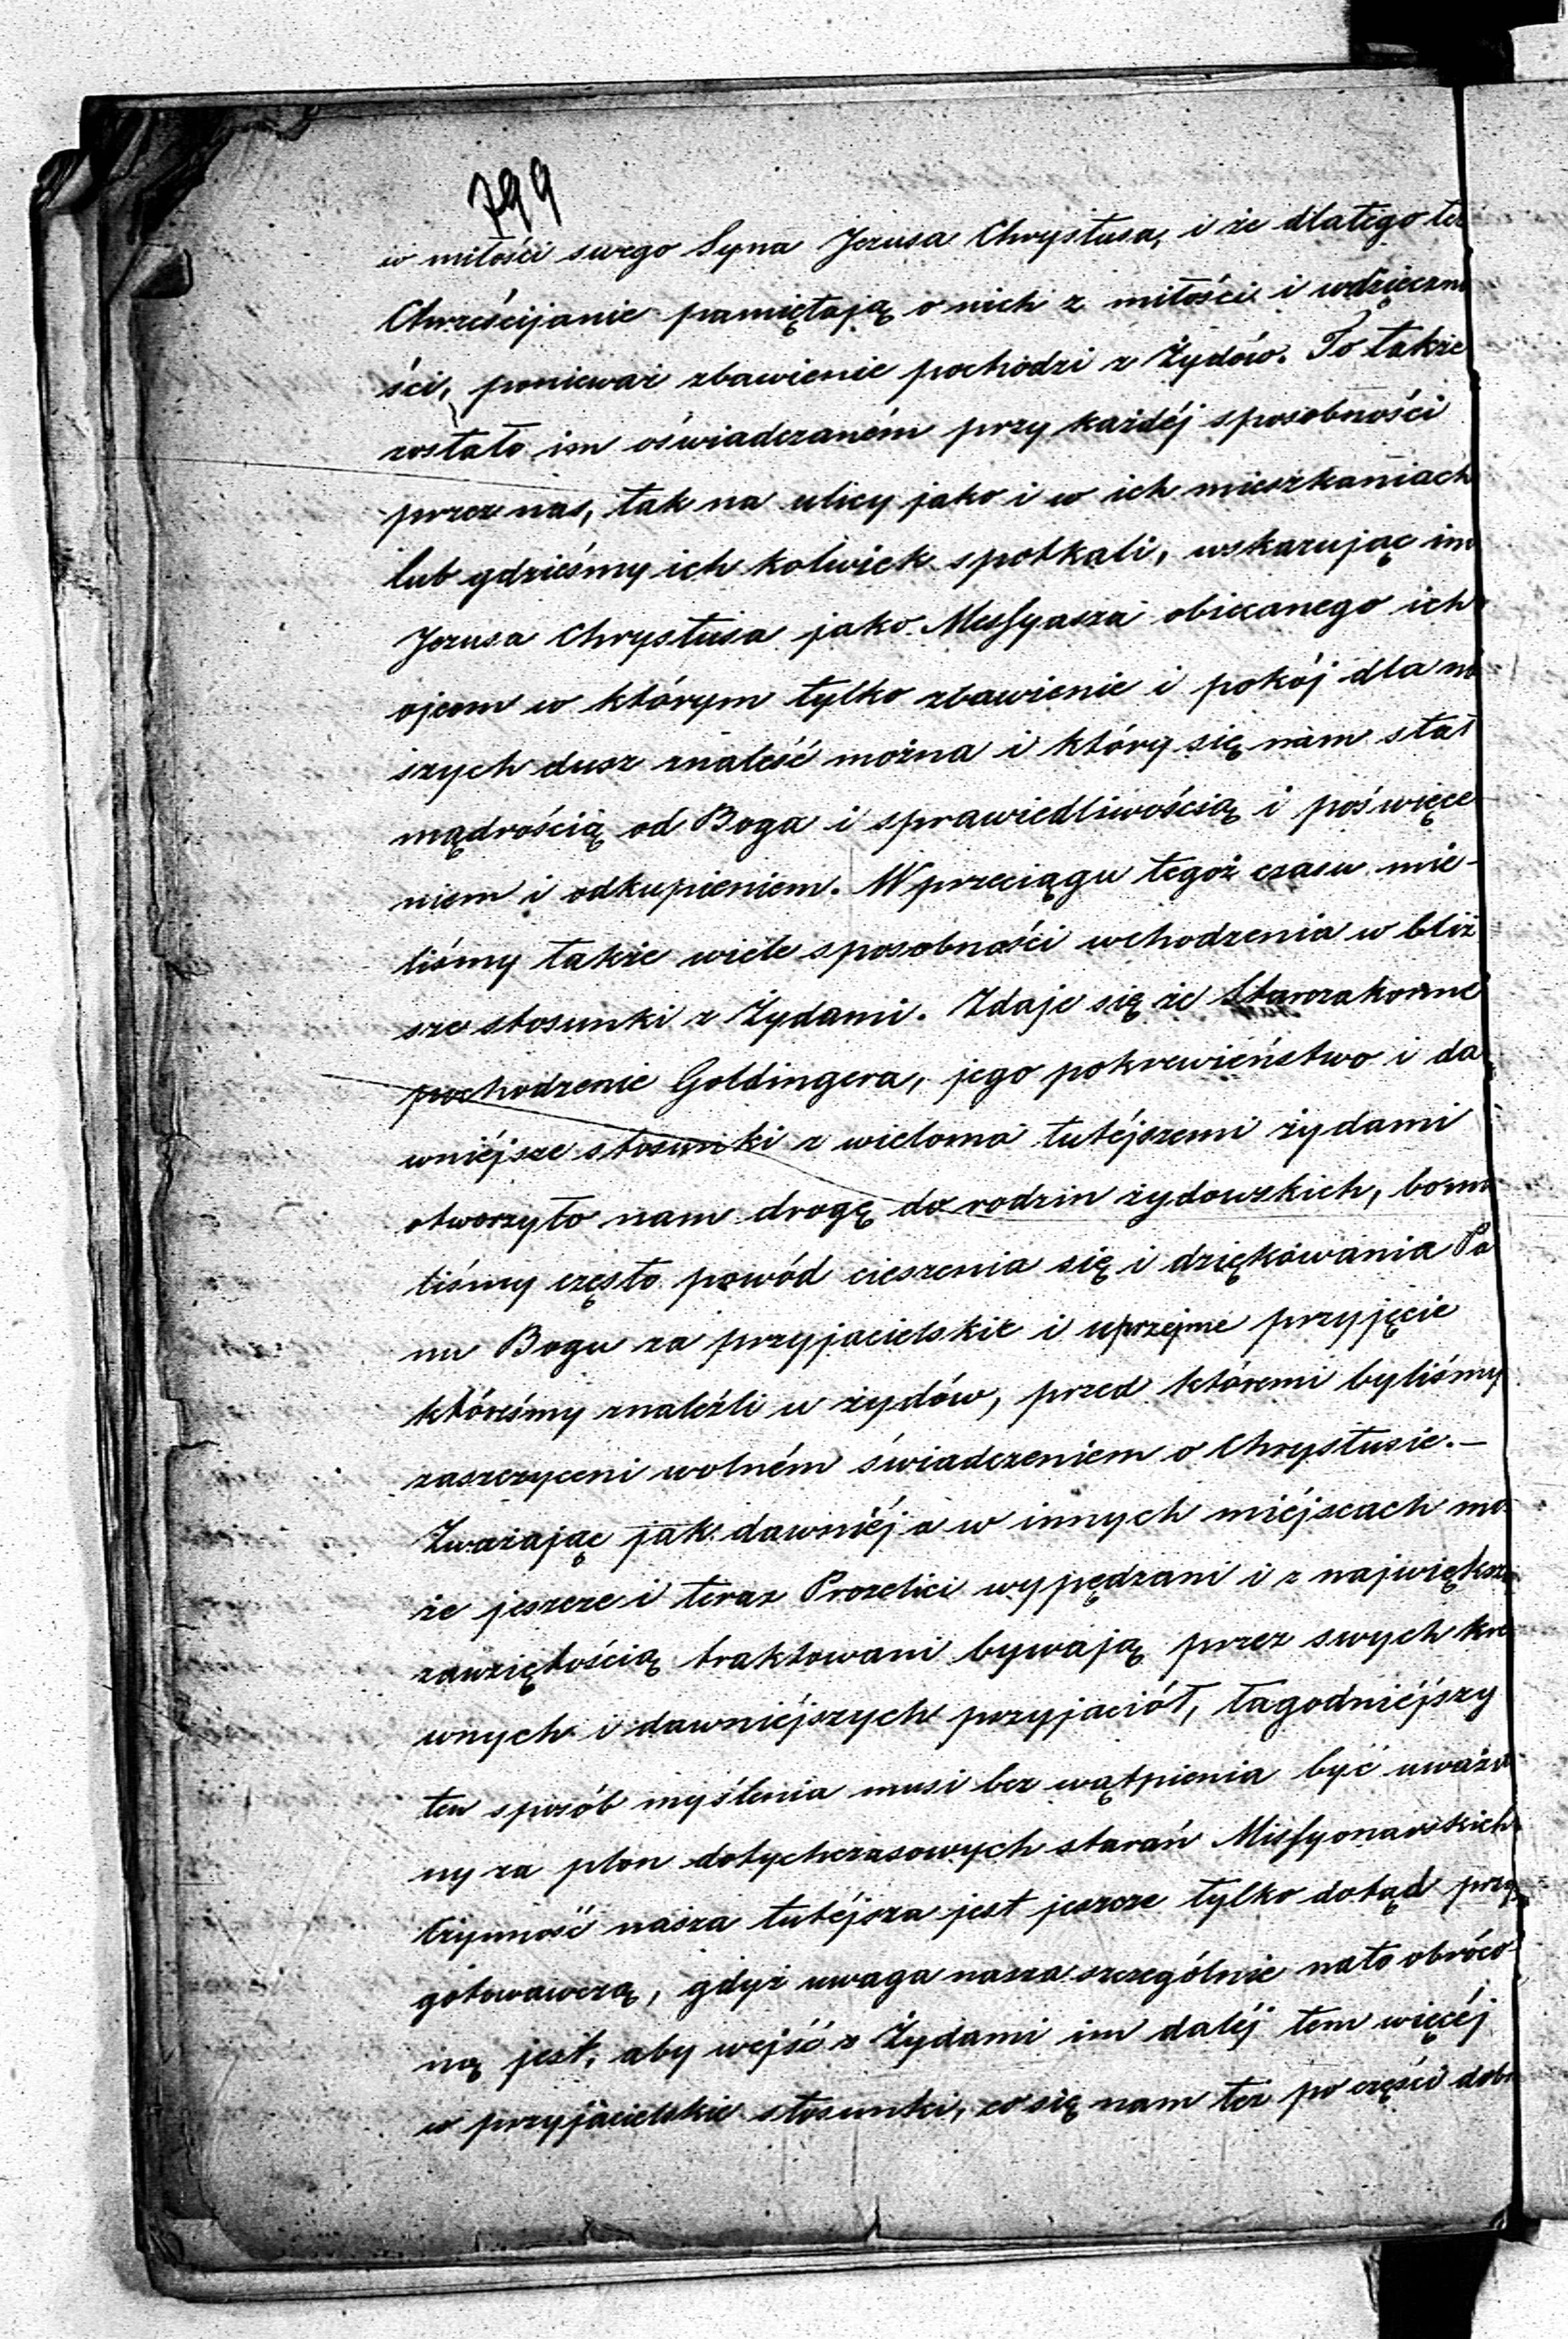 799
w miłości swego Syna Jezusa Chrystusa, i że dlatego też
Chrześcijanie pamiętają o nich z miłości i wdzięczno
ści, ponieważ zbawienie pochodzi z Żydów. To także
zostało im oświadczaném przy każdéj sposobności
przez nas, tak na ulicy jako i w ich mieszkaniach
lub gdzieśmy ich kolwiek spotkali, wskazując im
Jezusa Chrystusa jako Messyasza obiecanego ich
ojcom w którym tylko zbawienie i pokój dla na
szych dusz znaleść można i który się nam stał
mądrością od Boga i sprawiedliwością i poświęce
niem i odkupieniem. W przeciągu tegoż czasu mie-
liśmy także wiele sposobności wchodzenia w bliż
sze stosunki z Żydami. Zdaje się że Starozakonne
pochodzenie Goldingera, jego pokrewieństwo i da
wniéjsze stosunki z wieloma tutéjszemi żydami
otworzyło nam drogę do rodzin żydowskich, bo mie
liśmy często powód cieszenia się i dziękowania Pa
nu Bogu za przyjacielskie i uprzejme przyjęcie
któreśmy znaleźli u żydów, przed któremi byliśmy
zaszczyceni wolném świadczeniem o Chrystusie. —
Zważając jak dawniéj a w innych miéjscach mo
że jeszcze i teraz Prozelici wypędzani i z największą
zawziętością traktowani bywają przez swych kre
wnych i dawniéjszych przyjaciół, łagodniéjszy
ten sposób myślenia musi bez wątpienia być uważa
ny za plon dotychczasowych starań Missyonarskich
Czynność nasza tutéjsza jest jeszcze tylko dotąd przy
gotowawczą, gdyż uwaga nasza szczególnie na to obróco
ną jest, aby wejść z Żydami im daléj tem więcéj
w przyjacielskie stosunki, co się nam też po części dobrze